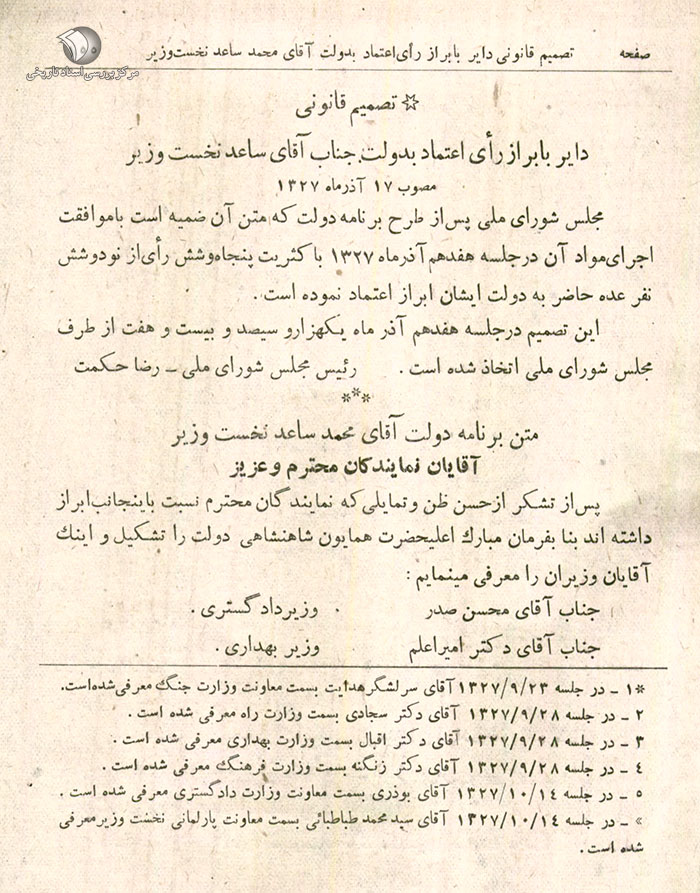 مرکز بررسی اسناد تاریخی
صفحه تصمیم قانونی دایر بابراز رأی اعتماد بدولت آقای محمد ساعد نخست‌وزیر
☆ تصمیم قانونی
دایر بابراز رأی اعتماد بدولت جناب آقای ساعد نخست وزیر
مصوب ۱۷ آذرماه ۱۳۲۷
مجلس شورای ملی پس‌از طرح برنامه دولت که متن آن ضمیه است باموافقت
اجرای‌مواد آن درجلسه هفدهم آذرماه ۱۳۲۷ باکثریت پنجاه‌وشش رأی‌از نودوشش
نفر عده حاضر به دولت ایشان ابراز اعتماد نموده است.
این تصمیم درجلسه هفدهم آذر ماه یکهزارو سیصد و بیست و هفت از طرف
مجلس شورای ملی اتخاذ شده است. رئیس مجلس شورای ملی ـ رضا حکمت
***
متن برنامه دولت آقای محمد ساعد نخست وزیر
آقایان نمایندگان محترم و عزیز
پس‌از تشکر ازحسن ظن وتمایلی‌که نمایندگان محترم نسبت باینجانب‌ابراز
داشته اند بنا بفرمان مبارك اعلیحضرت همایون شاهنشاهی دولت را تشکیل و اینك
آقایان وزیران را معرفی مینمایم:
جناب آقای محسن صدر وزیردادگستری.
جناب آقای دکتر امیراعلم وزیر بهداری.
*۱ ـ در جلسه ۱۳۲۷/۹/۲۳ آقای سرلشگرهدایت بسمت معاونت وزارت جنگ معرفی‌شده‌است.
۲ ـ در جلسه ۱۳۲۷/۹/۲۸ آقای دکتر سجادی بسمت وزارت راه معرفی شده است.
۳ ـ در جلسه ۱۳۲۷/۹/۲۸ آقای دکتر اقبال بسمت وزارت بهداری معرفی شده است.
٤ ـ در جلسه ۱۳۲۷/۹/۲۸ آقای دکتر زنگنه بسمت وزارت فرهنگ معرفی شده است.
٥ ـ در جلسه ۱۳۲۷/۱۰/۱٤ آقای بوذری بسمت معاونت وزارت دادگستری معرفی شده است.
» ـ در جلسه ۱۳۲۷/۱۰/۱٤ آقای سید محمد طباطبائی بسمت معاونت پارلمانی نخست وزیرمعرفی
شده است.